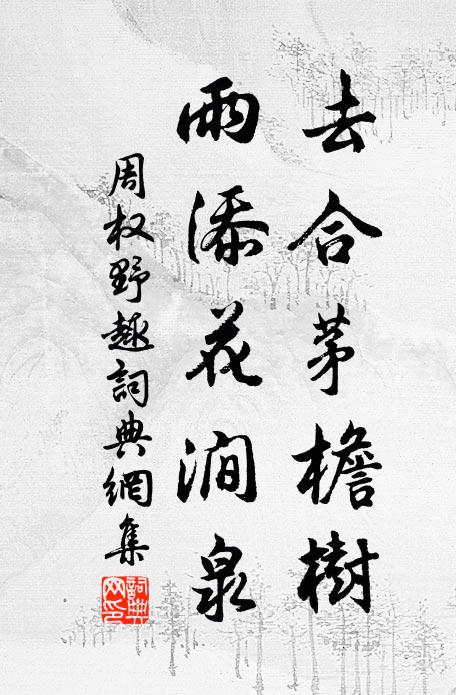 去合茅檐樹
雨添花澗泉
周权野趣詞典網集
詞典網印